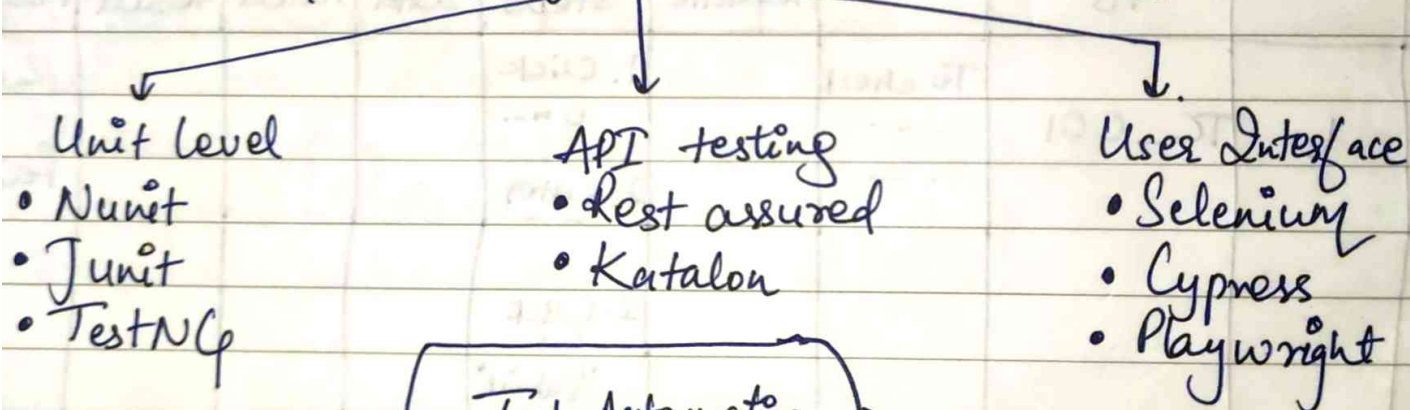 Unit level
• Nunit
• Junit
• TestNG
API testing
• Rest assured
• Katalon
User Interface
• Selenium
• Cypress
• Playwright